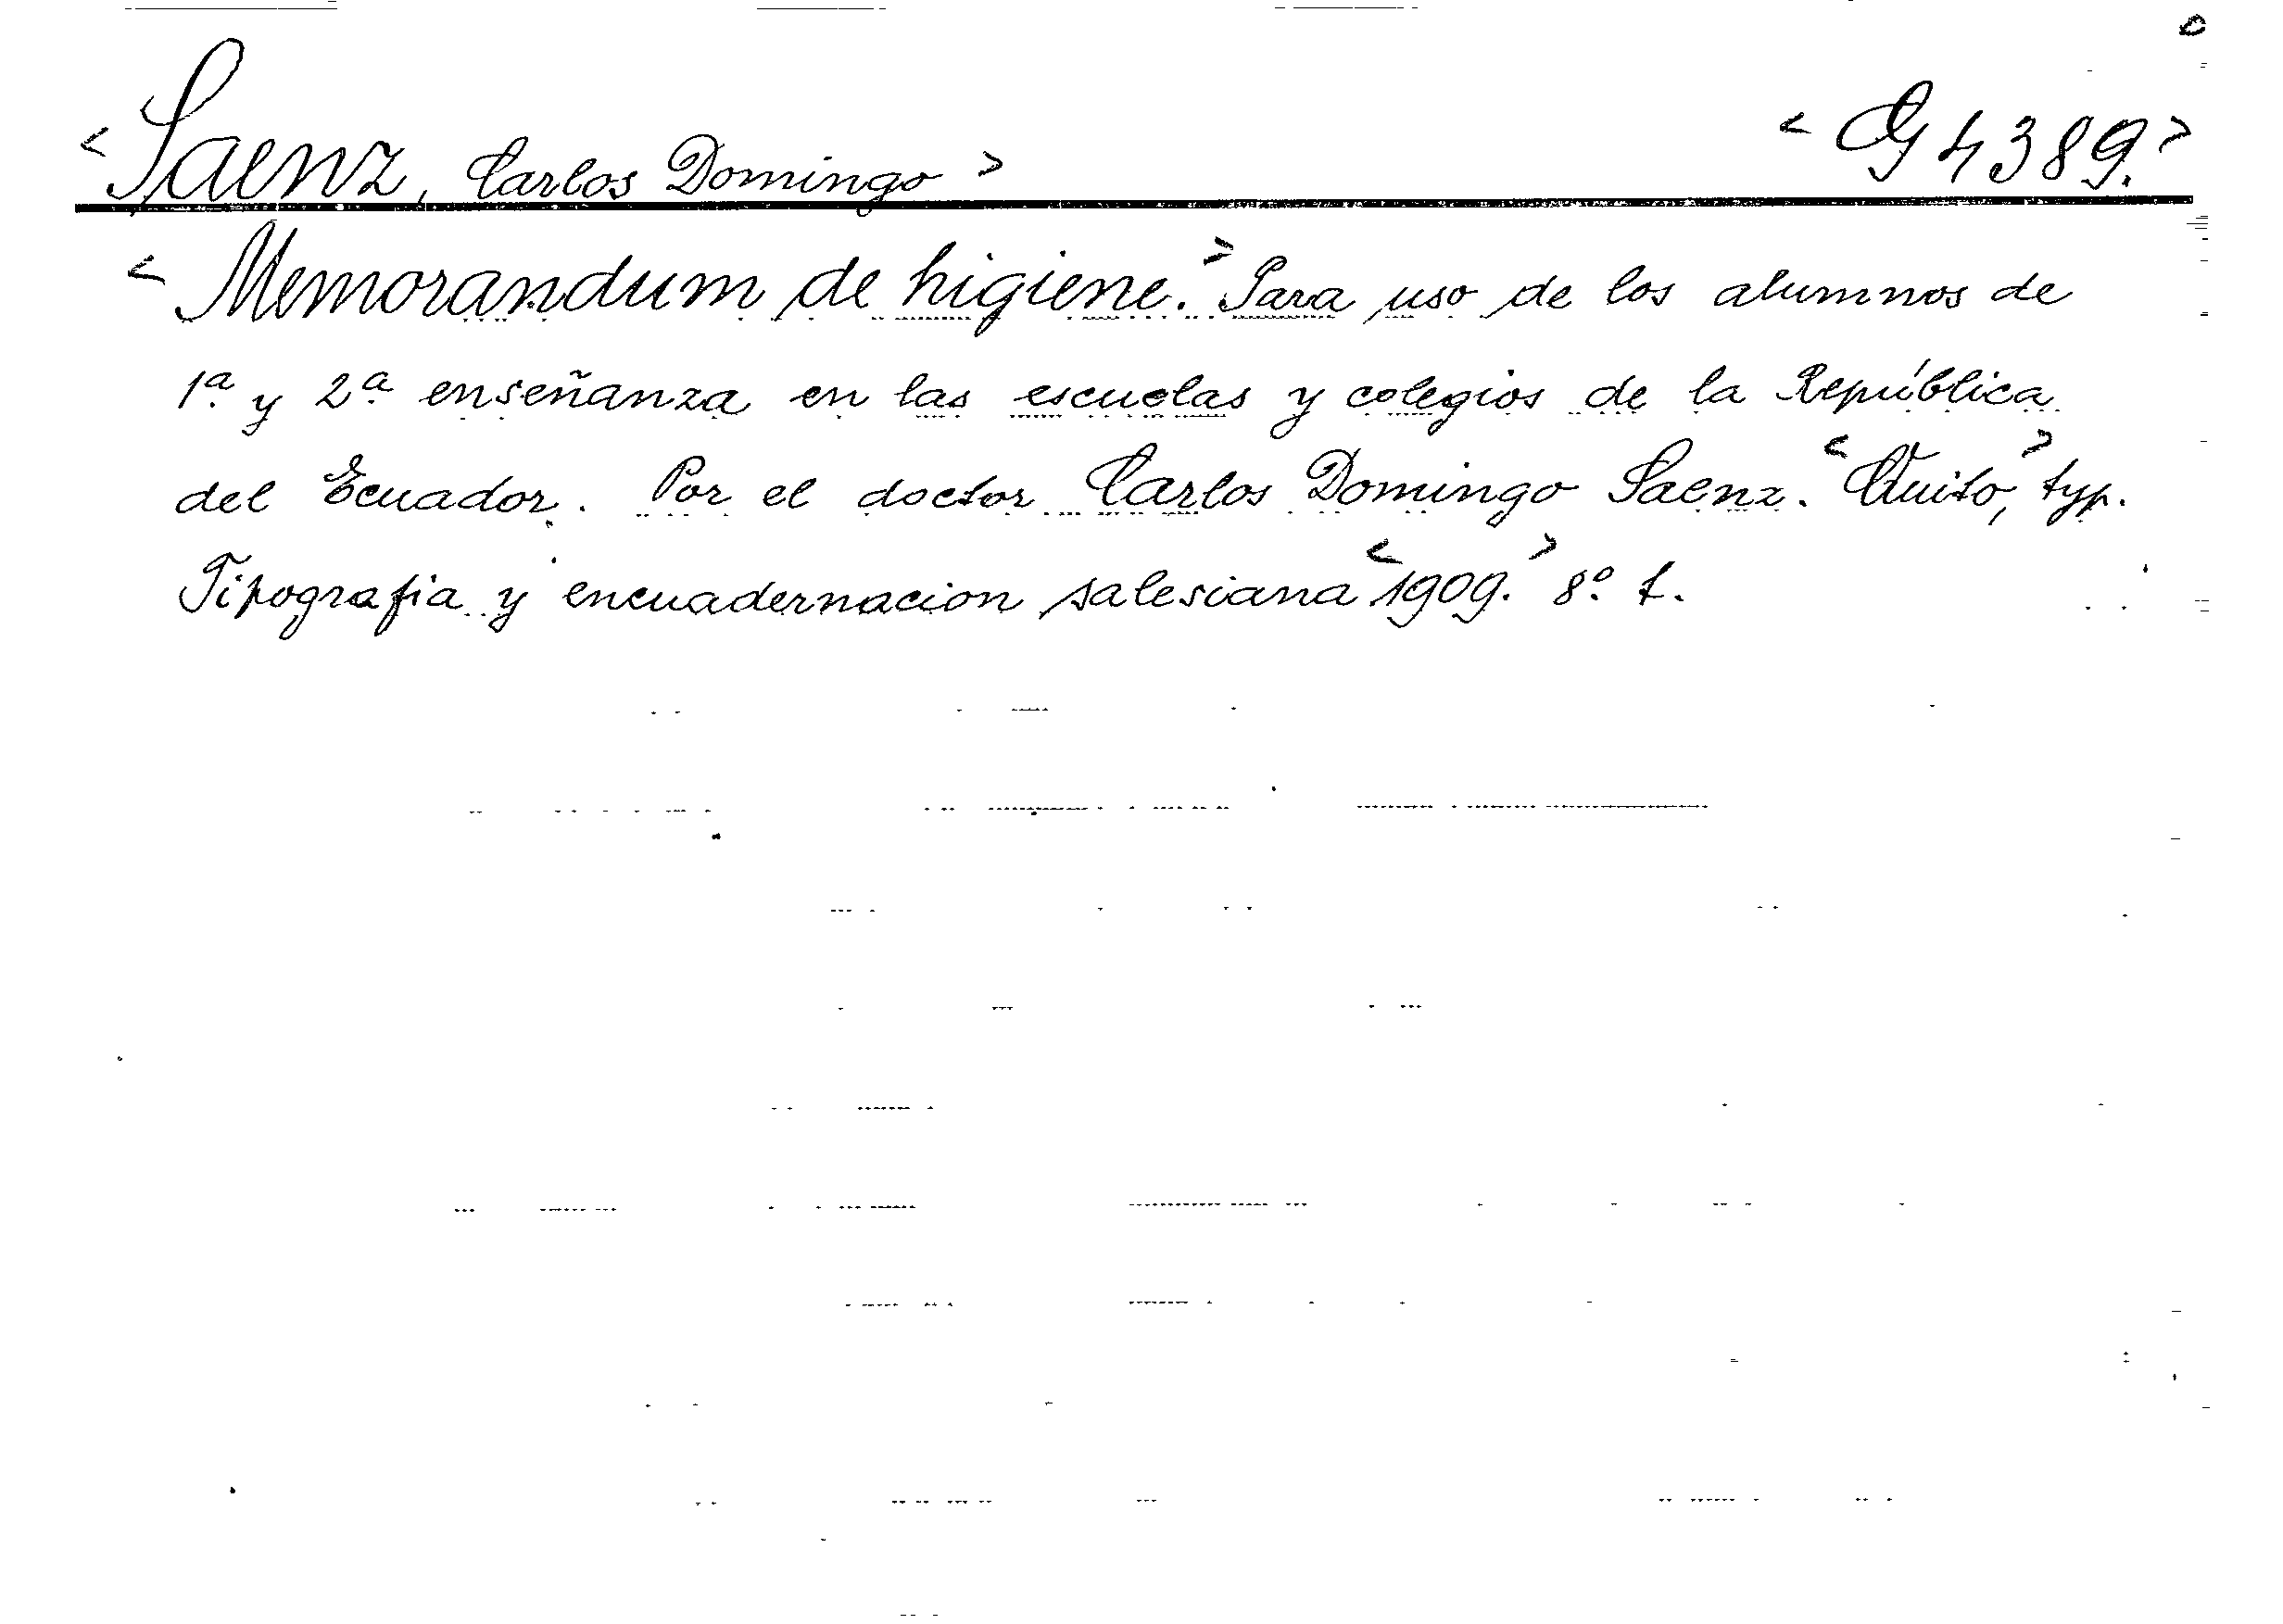 <Saenz, Carlos Domingo> <G 4389.>
<Memorandum de higiene.> Para uso de los alumnos de
1ª y 2ª enseñanza en las escuelas y colegios de la República
del Ecuador. Por el doctor Carlos Domingo Saenz. <Quito,> typ.
Tipografia y encuadernacion salesiana <1909.> 8º t.